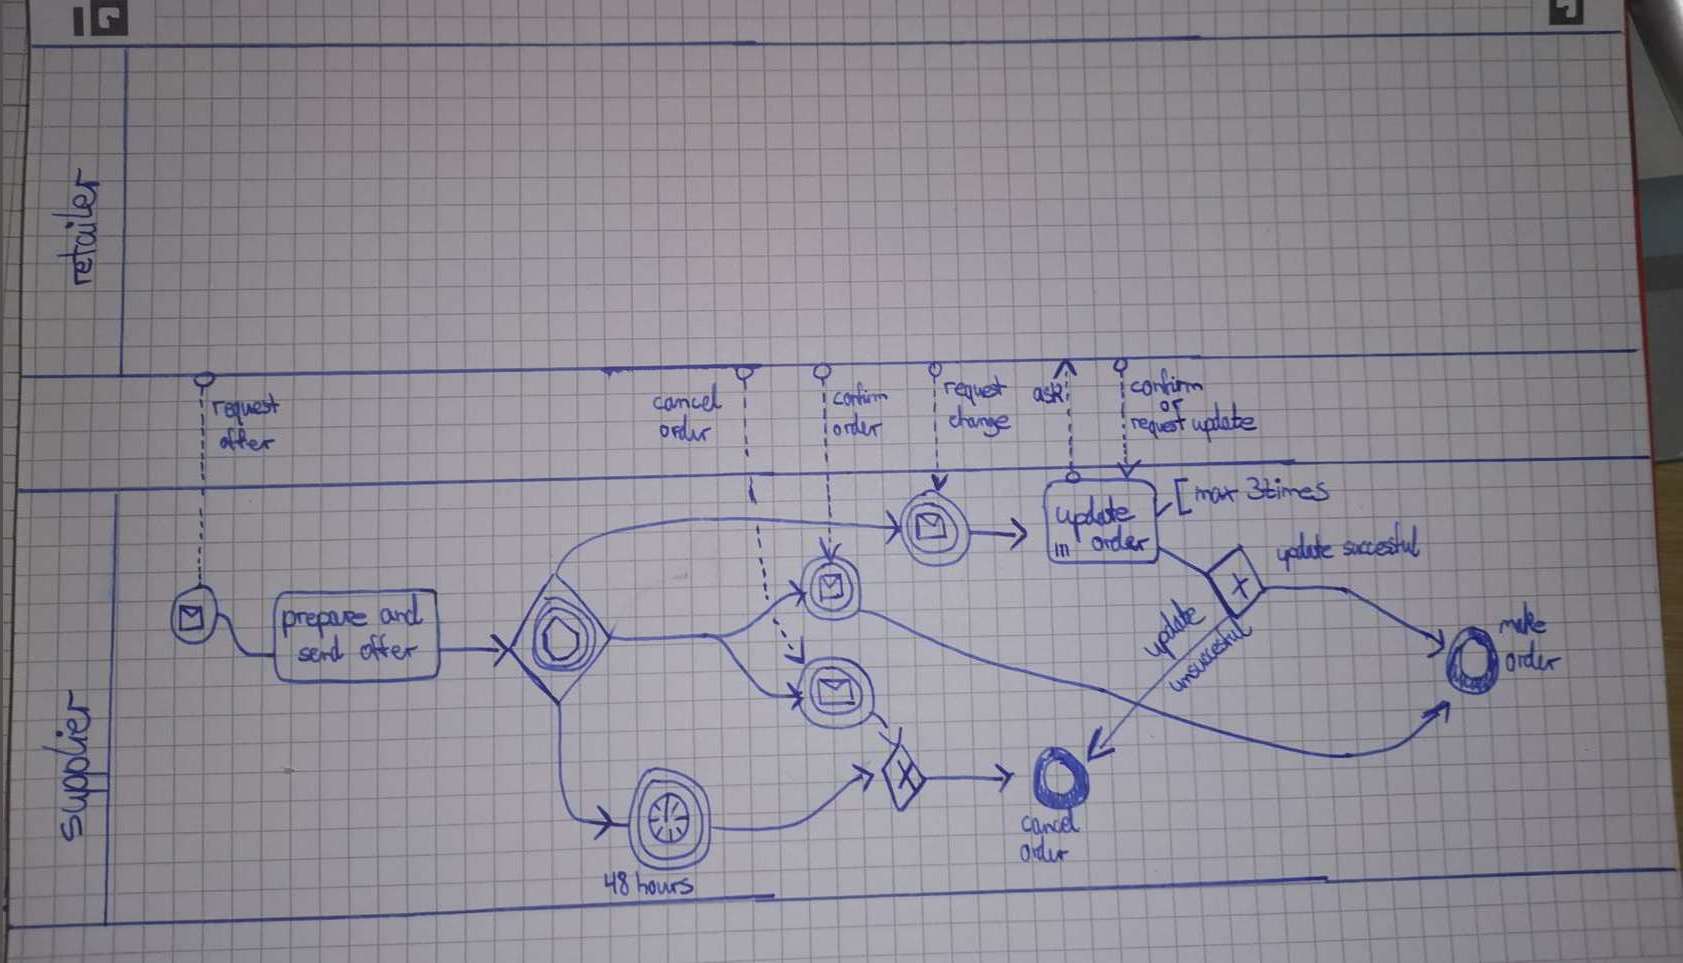 retailer
request
offer
cancel
order
confirm
order
request
change
ask
confirm
or
request update
supplier
prepare and
send offer
update
order
max 3times
update succesful
update
unsuccesful
make
order
cancel
order
48 hours